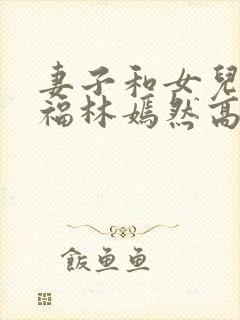 妻子和女兒
福林嫣然高
飯魚魚